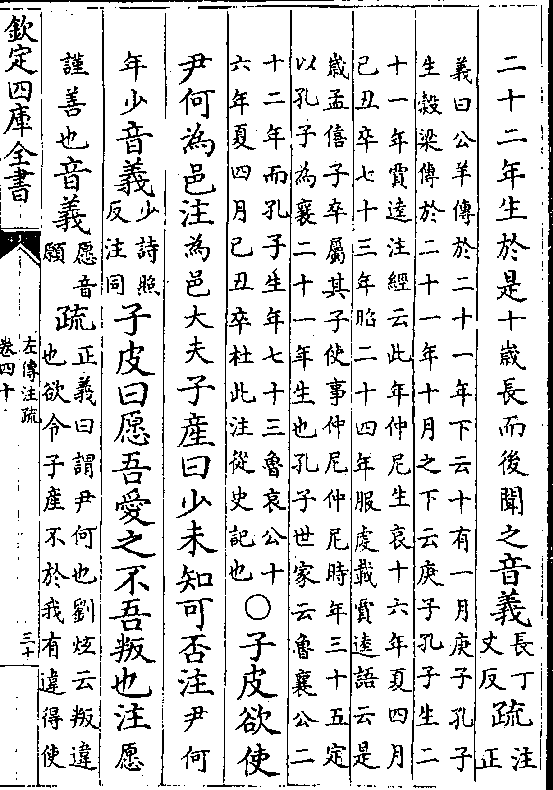 二十二年生於是十歳長而後聞之音義長丁丈反疏注正
義曰公羊傳於二十一年下云十有一月庚子孔子
生穀梁傳於二十一年十月之下云庚子孔子生二
十一年賈逵注經云此年仲尼生哀十六年夏四月
己丑卒七十三年昭二十四年服虔載賈逵語云是
歳孟僖子卒屬其子使事仲尼仲尼時年三十五定
以孔子為襄二十一年生也孔子世家云魯襄公二
十二年而孔子生年七十三魯哀公十
六年夏四月己丑卒杜此注從史記也○子皮欲使
尹何為邑注為邑大夫子産曰少未知可否注尹何
年少音義少詩照反注同子皮曰愿吾愛之不吾叛也注愿
謹善也音義愿音願疏正義曰謂尹何也劉炫云叛違
也欲令子產不於我有違得使
欽定四庫全書
左傳注疏
卷四十
三十